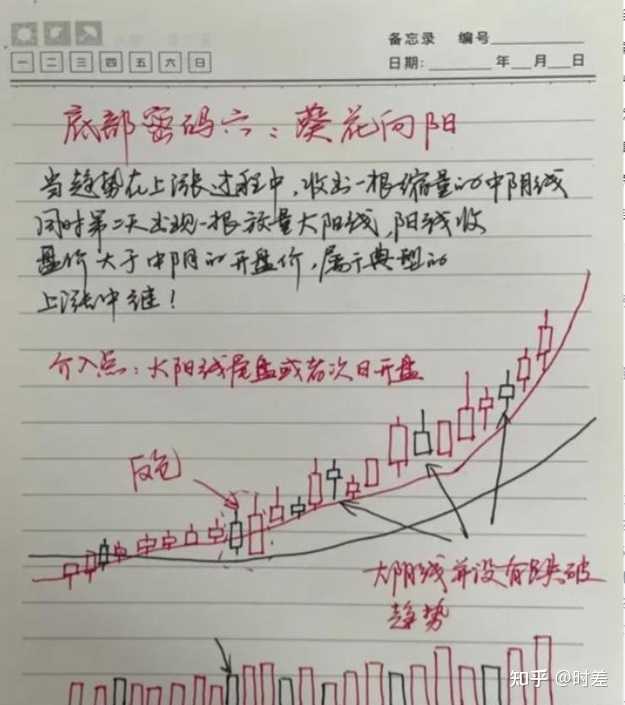 备忘录 编号
一 二 三 四 五 六 日
日期: 年 月 日
底部密码六：葵花向阳
当趋势在上涨过程中，收出一根缩量的中阴线
同时第二天出现一根放量大阳线，阳线收
盘价大于中阴的开盘价，属于典型的
上涨中继！
介入点：大阳线尾盘或者次日开盘
反包
大阴线并没有跌破
趋势
知乎 @时差